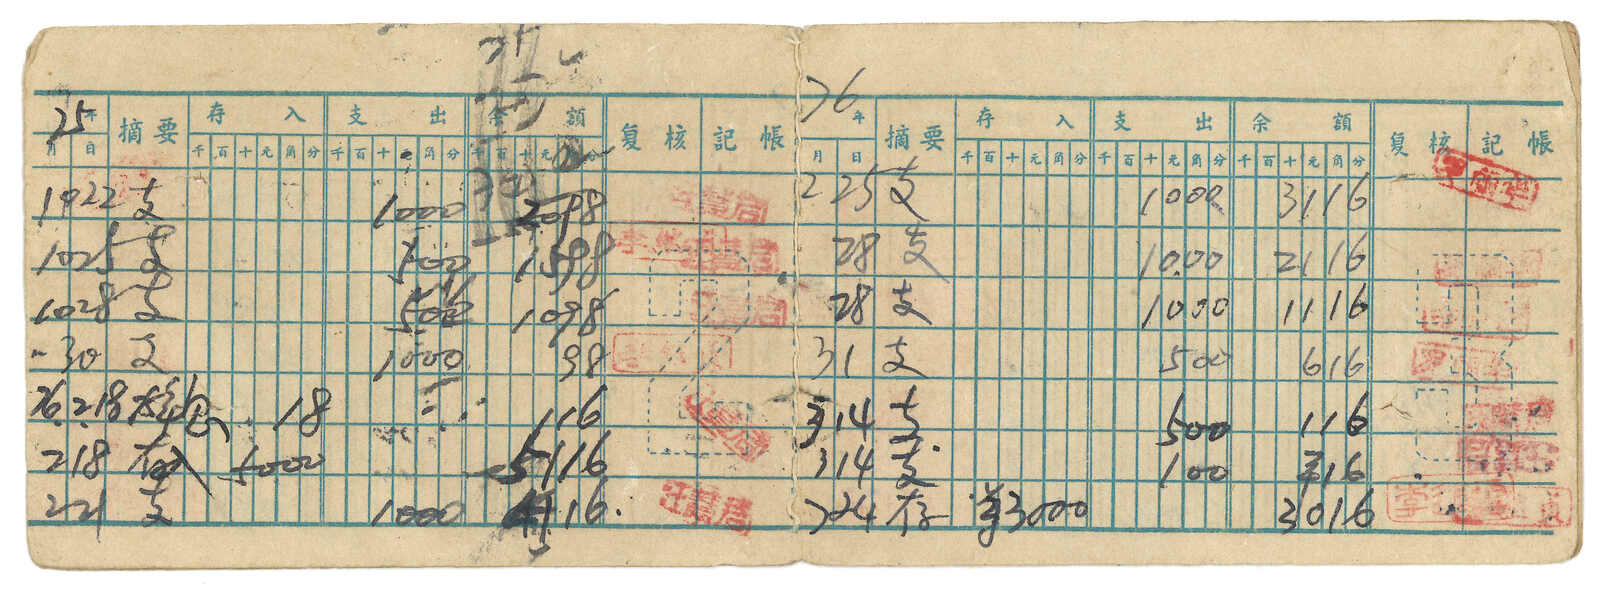 75年 摘要 存入 支出 余額 复核 記帳
月 日 千百十元角分 千百十角分 千百十元分
1022 支 1000 2098
1025 支 500 1598
1028 支 500 1098
30 支 1000 98
76.218 18 116
218 存入 5000 5116
221 支 1000 4116
76年 摘要 存入 支出 余額 复核 記帳
月 日 千百十元角分 千百十元角分 千百十元角分
225 支 1000 3116
28 支 1000 2116
28 支 1000 1116
31 支 500 616
314 支 500 116
314 支 100 16
324 存 3000 3016